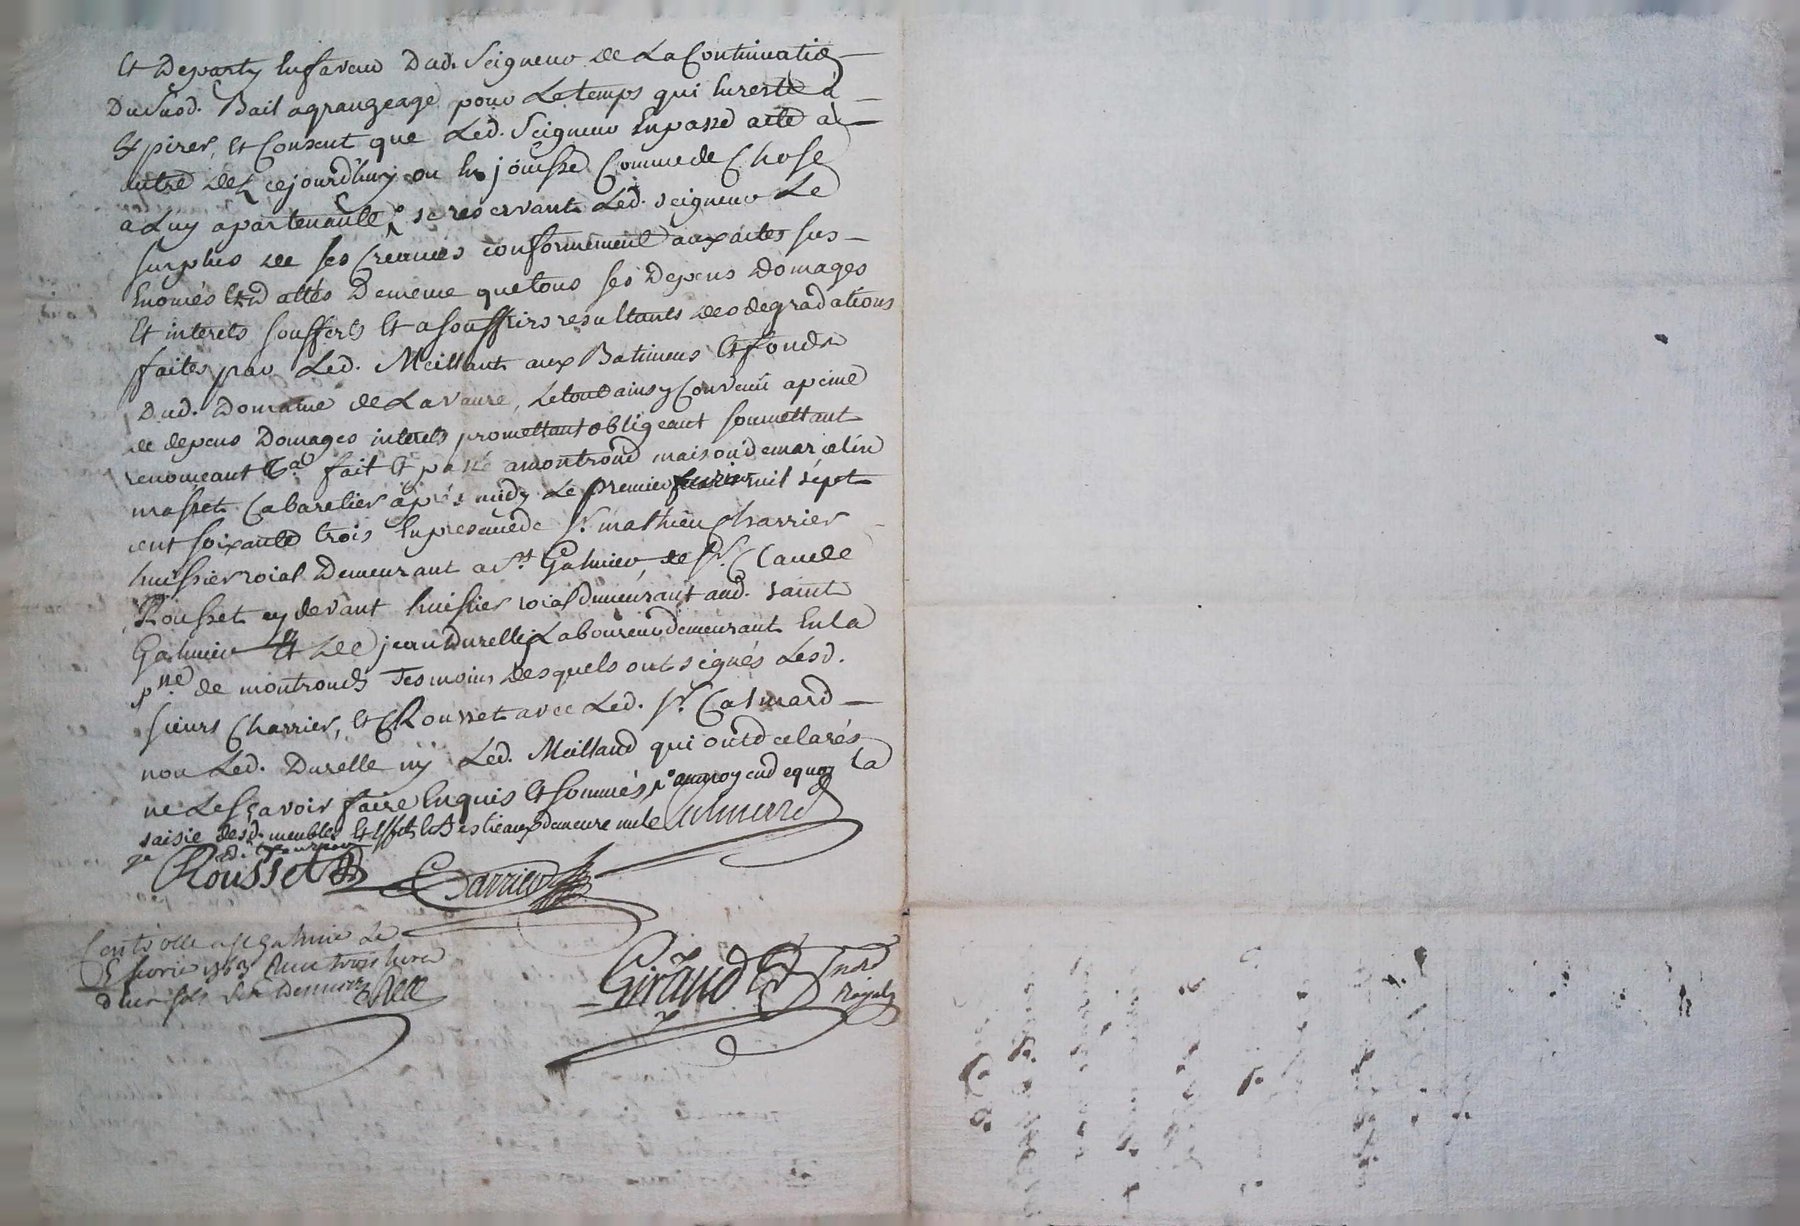 Et Departy Enfaveur Dud. Seigneur de La Continuatiõ
Dususd. Bail agrangeage pour Le temps qui Enreste à
Expirer, Et Consent que Led. Seigneur Enpasse acte à
autre dez cejourd'huy ou En jouisse Comme de Chose
a Luy apartenante, se reservant Led. seigneur Le
surplus de ses Creances conformement aux actes sus
Enomés Et dattés De meme que tous ses Depens Domages
Et interets soufferts Et a souffrirs resultants des degradations
faites par Led. Meilland aux Batimens Et fonds
Dud. Domaine de La vaure, Le tout ainsy Convenu a peine
de depens Domages interets promettant obligeant soumettant
renonceant &a. fait Et passé a montrond maison de marcelin
masset Cabaretier après midy Le premier fevrier mil sept
cent soixante trois En presence de Sr. mathieu Charrier
huissier roial Demeurant a St. Galmier, de Sr. Claude
Rousset cy devant huissier roial demeurant aud. saint
Galmier Et de jean Durelle Laboureur demeurant En la
psse de montrond Tesmoins desquels ont signés Lesd.
sieurs Charrier, Et Rousset avec Led. Sr. Calmard
non Led. Durelle ny Led. Meilland qui ont declarés
ne Le sçavoir faire Enquis Et sommés, au moyen de quoy la
saisie desd. meubles Et Effets Et Bestieaux demeure nulle Calmard
Rousset Charrier
Controllé a St Galmier Le
5 fevrie 1763 Reçu trois livre
Giraud Nore
Royal